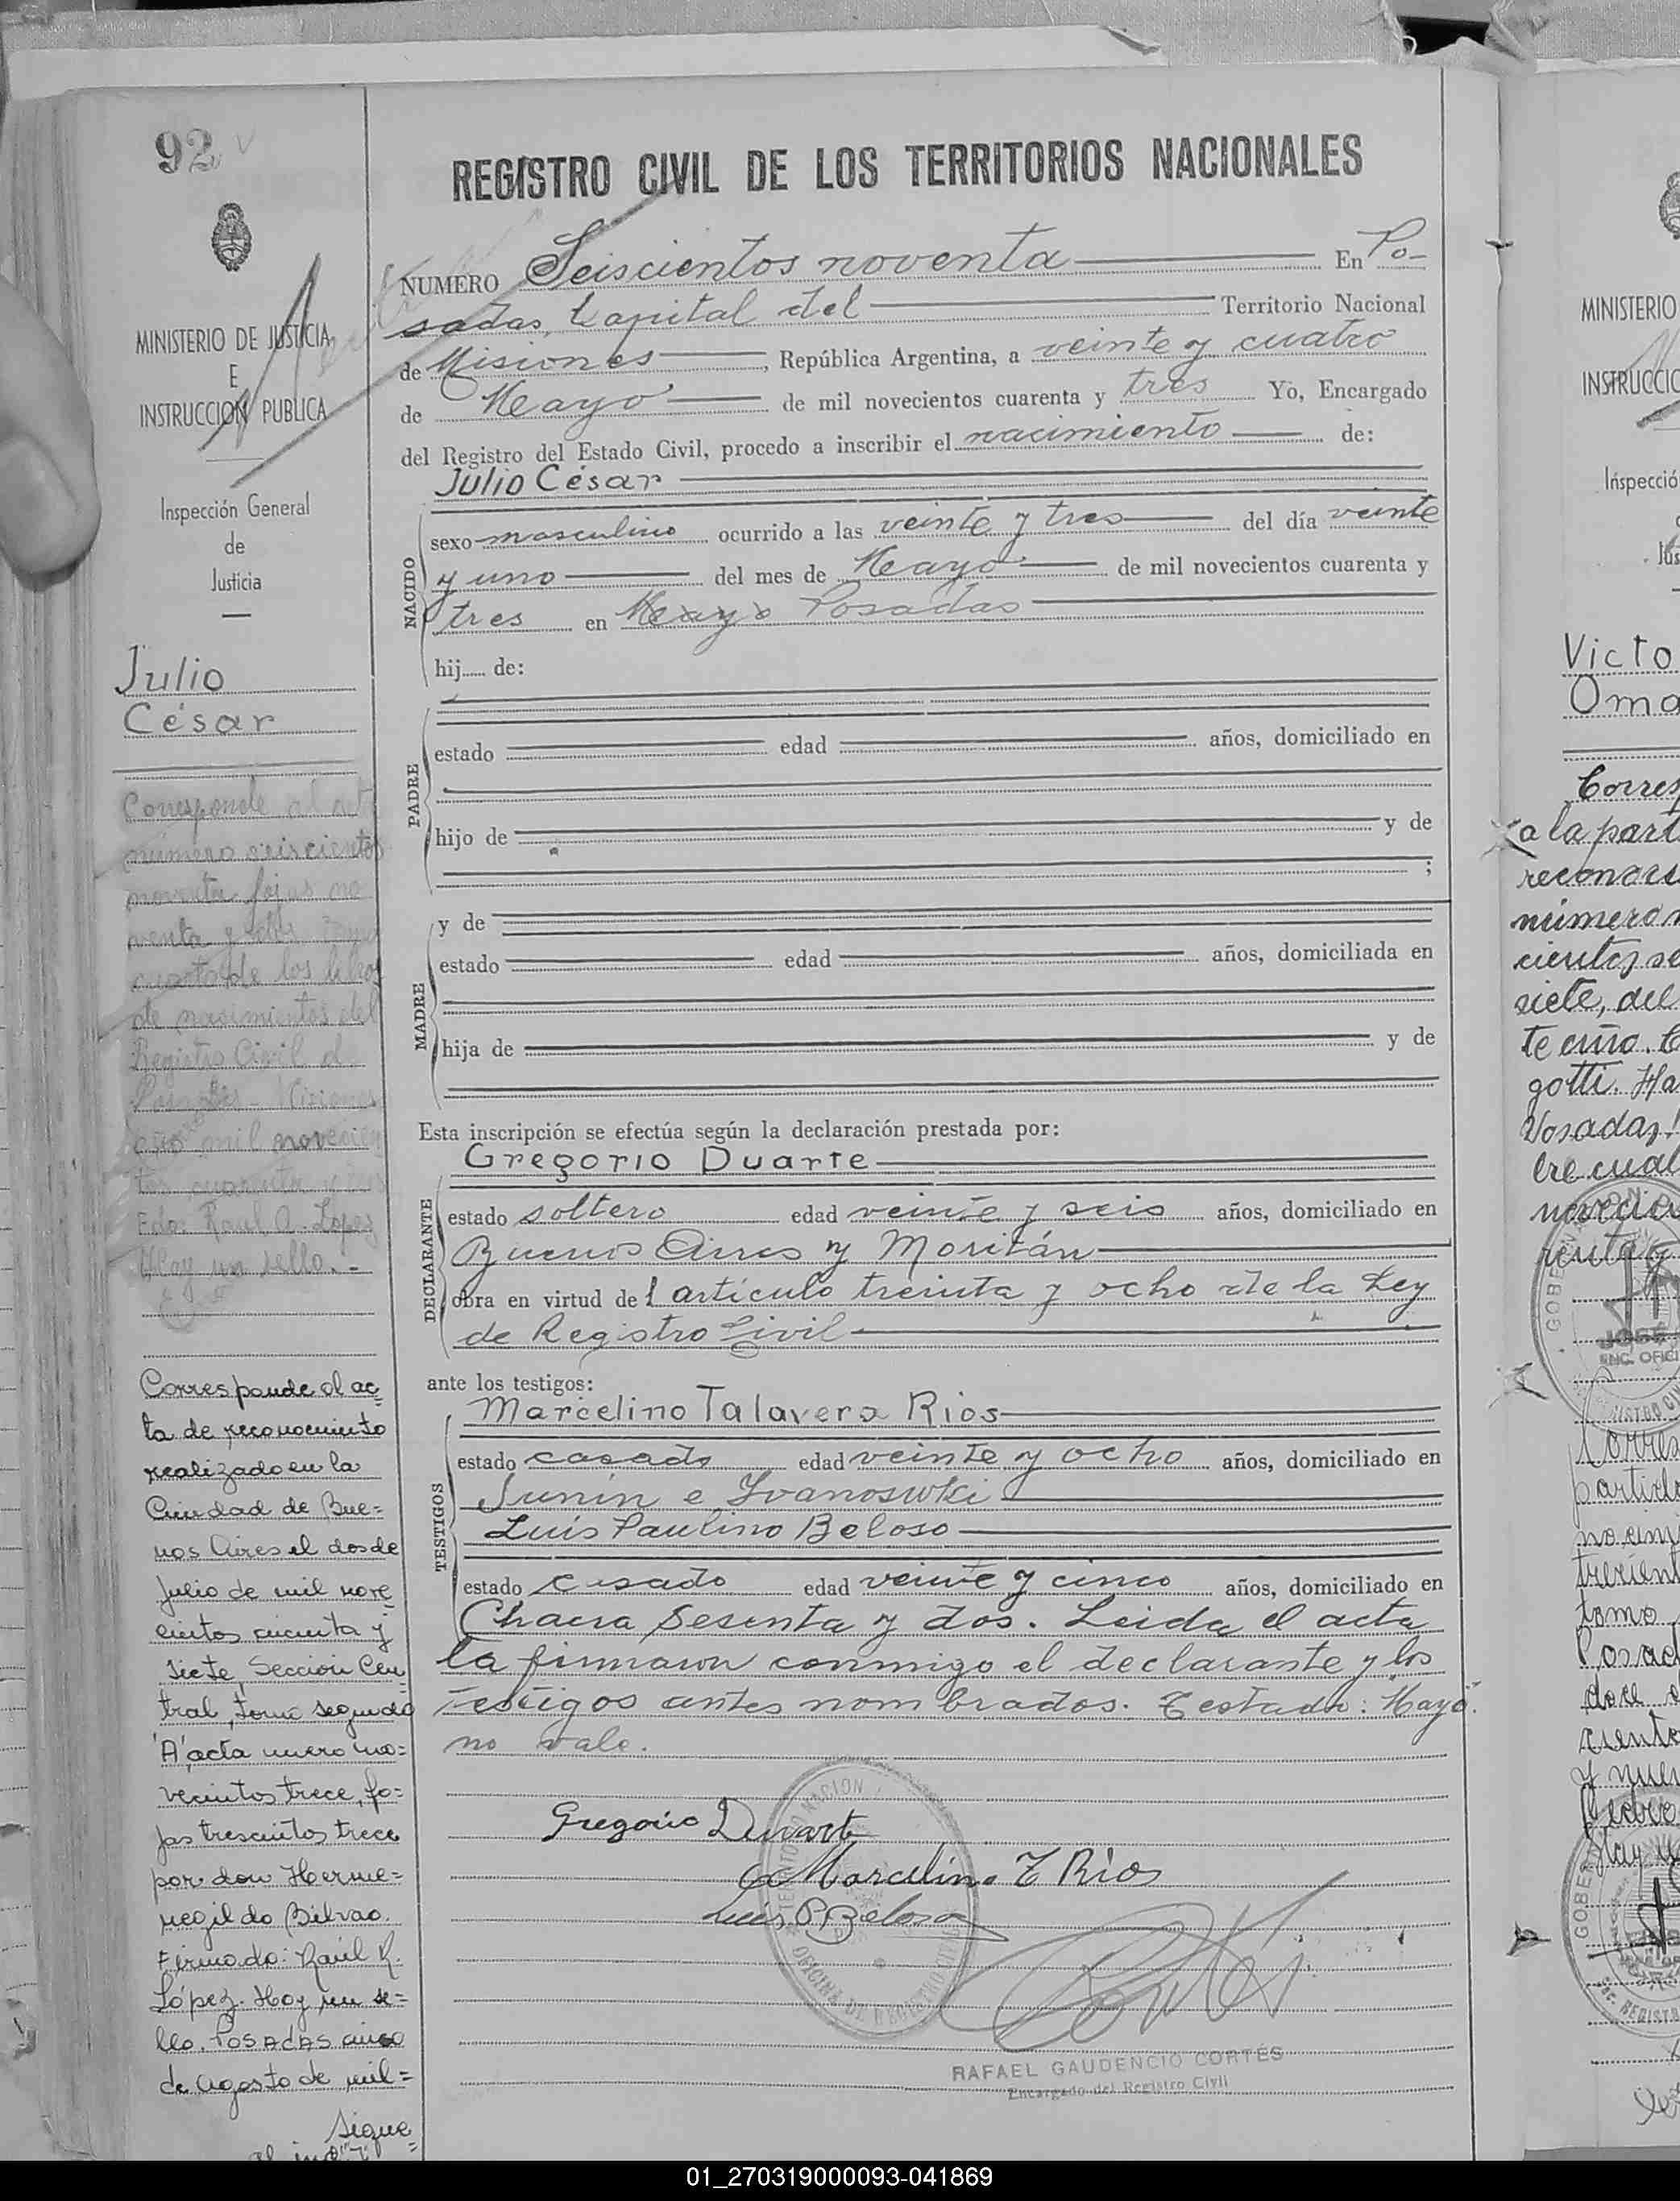 92
REGISTRO CIVIL DE LOS TERRITORIOS NACIONALES
MINISTERIO DE JUSTICIA
E
INSTRUCCION PUBLICA
Inspección General
de
Justicia
Julio
César
Corresponde al act
número seiscientos
noventa fojas no
venta y
cuarto de los libros
de nacimientos del
Registro Civil d
Posadas - Misiones
año mil novecien
tos cuarenta y tres
Fdo: Raul A. Lopez
Hay un sello.-
Corresponde al ac
ta de reconocimiento
realizado en la
Ciudad de Bue=
nos Aires el dos de
Julio de mil nove
cientos cincuenta y
siete, Sección Cen
tral, tomo segundo
"A" acta número no=
vecientos trece, fo=
jas trescientos trece
por don Herme=
negildo Bilvao.
Firmado: Raúl R.
López. Hay un se=
llo. POSADAS cinco
de agosto de mil=
Sigue
NUMERO Seiscientos noventa En Po-
sadas, Capital del Territorio Nacional
de Misiones, República Argentina, a veinte y cuatro
de Mayo de mil novecientos cuarenta y tres Yo, Encargado
del Registro del Estado Civil, procedo a inscribir el nacimiento de:
Julio César
NACIDO
sexo masculino ocurrido a las veinte y tres del día veinte
y uno del mes de Mayo de mil novecientos cuarenta y
tres en Mayo Posadas
hij..... de:
PADRE
estado edad años, domiciliado en
hijo de y de
;
MADRE
y de
estado edad años, domiciliada en
hija de y de
Esta inscripción se efectúa según la declaración prestada por:
Gregorio Duarte
DECLARANTE
estado soltero edad veinte y seis años, domiciliado en
Buenos Aires y Moritán
obra en virtud del artículo treinta y ocho de la Ley
de Registro Civil
ante los testigos:
Marcelino Talavera Rios
TESTIGOS
estado casado edad veinte y ocho años, domiciliado en
Junín e Ivanoswki
Luis Paulino Beloso
estado casado edad veinte y cinco años, domiciliado en
Chacra Sesenta y dos. Leida el acta
la firmaron conmigo el declarante y los
testigos antes nombrados. Testado: "Mayo"
no vale.
Gregorio Duarte
Marcelino T Rios
Luis P Beloso
Cortés
RAFAEL GAUDENCIO CORTÉS
Encargado del Registro Civil
MINISTERIO
INSTRUCCIO
Inspecció
Jus
Victo
Oma
Corres
a la part
reconoci
número n
cientos se
siete, del
te año.
gotti. Ha
Posadas,
novecie
renta y
JOSÉ
ENC. OFICI
Corres
partida
no cim
tomo
Posad
doce
ciento
y nuev
01_270319000093-041869